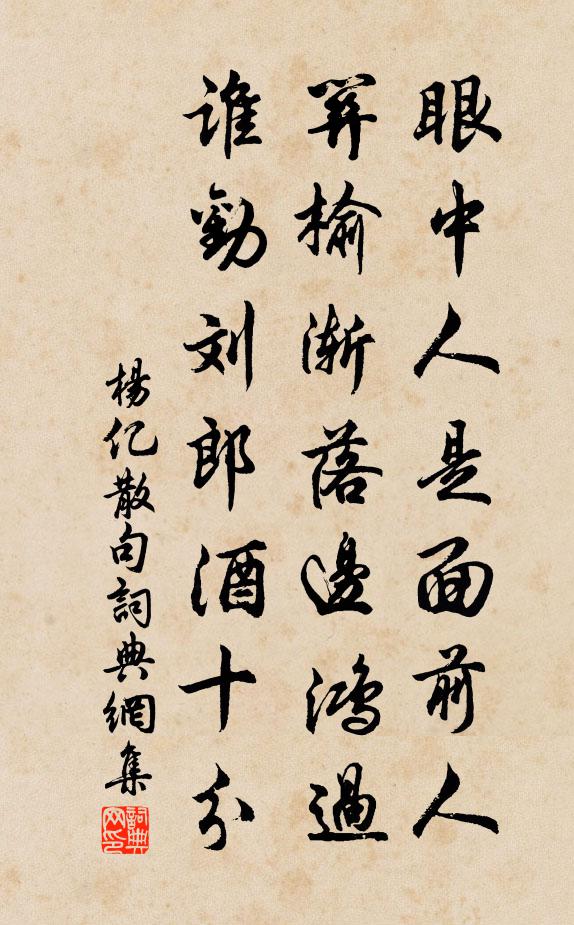 眼中人是面前人
榆渐落邊鸿過
谁勸刘郎酒十分
楊亿散句詞典網集
詞典网印